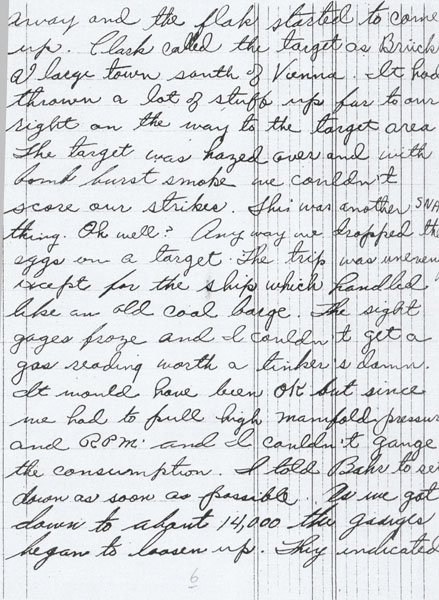 away and the flak started to come
up. Clark called the target as Brück
a large town south of Vienna. It had
thrown a lot of stuff up far to our
right on the way to the target area
The target was hazed over and with
bomb burst smoke we couldn't
score our strikes. This was another SNA
thing. Oh well? Any way we dropped the
eggs on a target. The trip was uneven
except for the ship which handled
like an old coal barge. The sight
gages froze and I couldn't get a
gas reading worth a tinker's damn.
It would have been OK but since
we had to pull high manifold pressur
and RPM. and I couldn't gauge
the consumption. I told Bahr to
down as soon as possible. As we got
down to about 14,000 the gauges
began to loosen up. They indicated
6